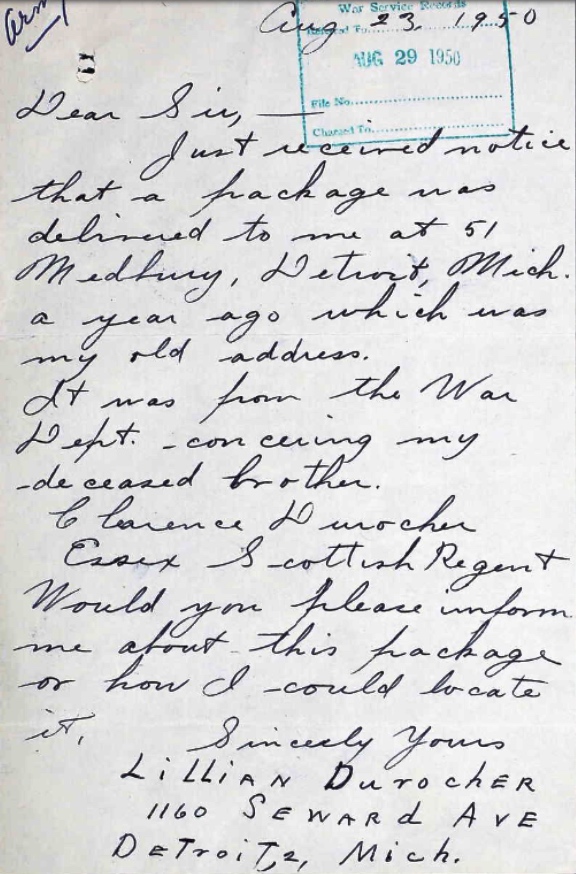 Army
Aug 23, 1950
War Service Records
Referred To
AUG 29 1950
File No.
Charged To
Dear Sir, —
Just received notice
that a package was
delivered to me at 51
Medbury, Detroit, Mich.
a year ago which was
my old address.
It was from the War
Dept. concering my
deceased brother.
Clarence Durocher
Essex Scottish Regent
Would you please inform
me about this package
or how I could locate
it,
Sincely Yours
LiLLiAN DurocHER
1160 SEWARd AVE
DETroiT,2, Mich.